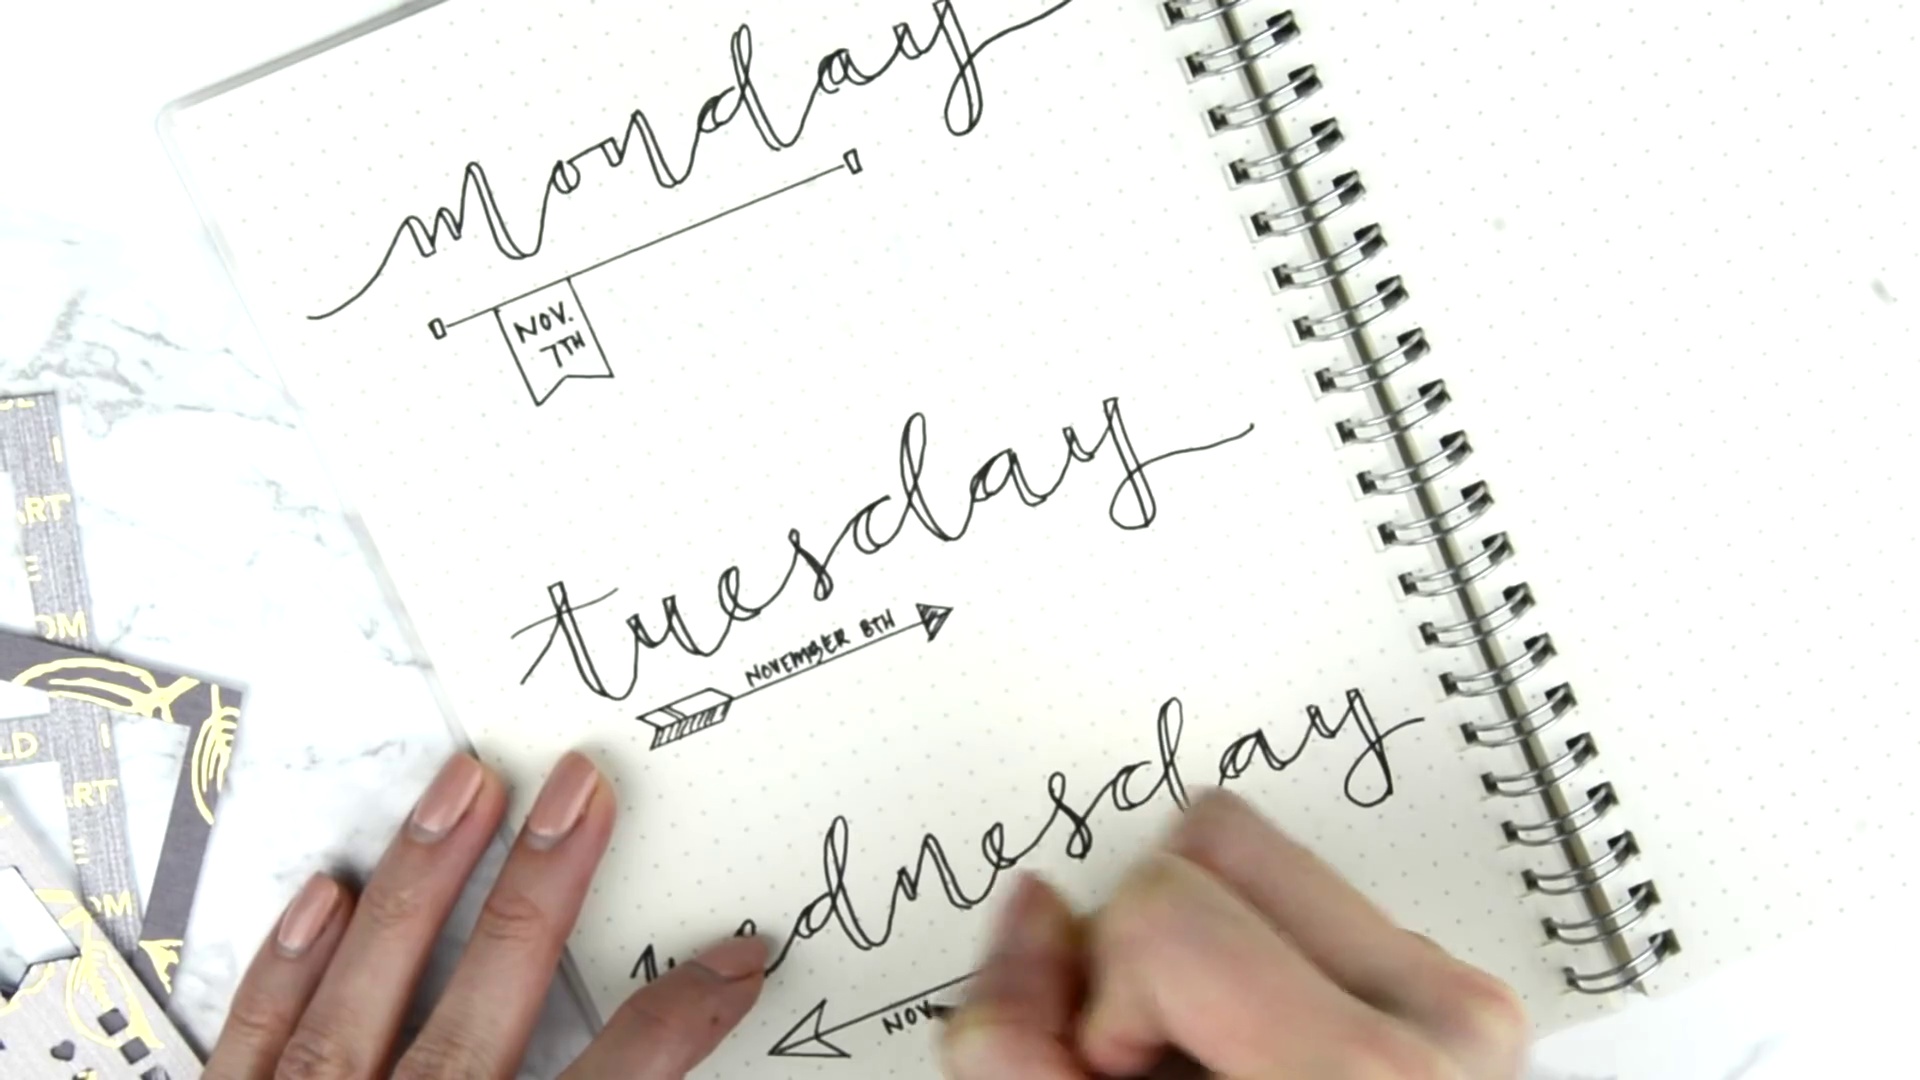 monday
NOV.
7TH
tuesday
NOVEMBER 8TH
wednesday
NOV
ART
E
OM
LD
I
ART
E
OM